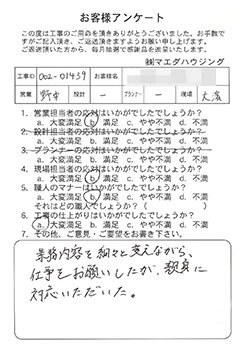 お客様アンケート
この度は工事のご用命を頂きありがとうございました。お手数で
すがご記入頂き、ご返送頂きますようお願い申し上げます。
ご返送頂いた方から、毎月抽選で感謝品を進呈いたします。
㈱マエダハウジング
工事ID 002-01459 お客様名
営業 野中 設計 — プランナー — 現場 大濱
1. 営業担当者の応対はいかがでしたでしょうか?
a. 大変満足 b. 満足 c. やや不満 d. 不満
2. 設計担当者の応対はいかがでしたでしょうか?
a. 大変満足 b. 満足 c. やや不満 d. 不満
3. プランナーの応対はいかがでしたでしょうか?
a. 大変満足 b. 満足 c. やや不満 d. 不満
4. 現場担当者の応対はいかがでしたでしょうか?
a. 大変満足 b. 満足 c. やや不満 d. 不満
5. 職人のマナーはいかがでしたでしょうか?
a. 大変満足 b. 満足 c. やや不満 d. 不満
それはどの職人でしょうか?( )
6. 工事の仕上がりはいかがでしたでしょうか?
a. 大変満足 b. 満足 c. やや不満 d. 不満
7. その他、ご意見・ご要望をお書き下さい。
業務内容を細々と変えながら、
仕事をお願いしたが、親身に
対応いただいた。